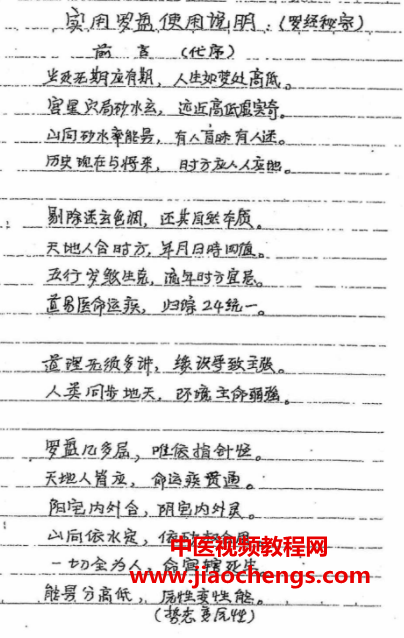 实用罗盘使用说明:(罗经秘密)
前言 (代序)
生死无期应有期，人生如梦处高低。
宫星穴局砂水玄，远近高低虚实奇。
山向砂水率能量，有人盲昧有人迷。
历史现在与将来，时方应人人应地。
剔除迷玄色调，还其自然本质。
天地人合时方，年月日时四值。
五行岁数生克，流年时方宜忌。
道易医命运疾，归综24统一。
道理无须多讲，缘识导致主张。
人类同步地天，环境主命弱强。
罗盘几多层，唯依指针
天地人皆应，命运疾贯通。
阳宅内外合，阴宅内外灵。
山向依水定，
一切全为人，命宫辖死生。
能量分高低，属性变性能。
(势态变属性)
中医视频教程网
www.jiaochengs.com